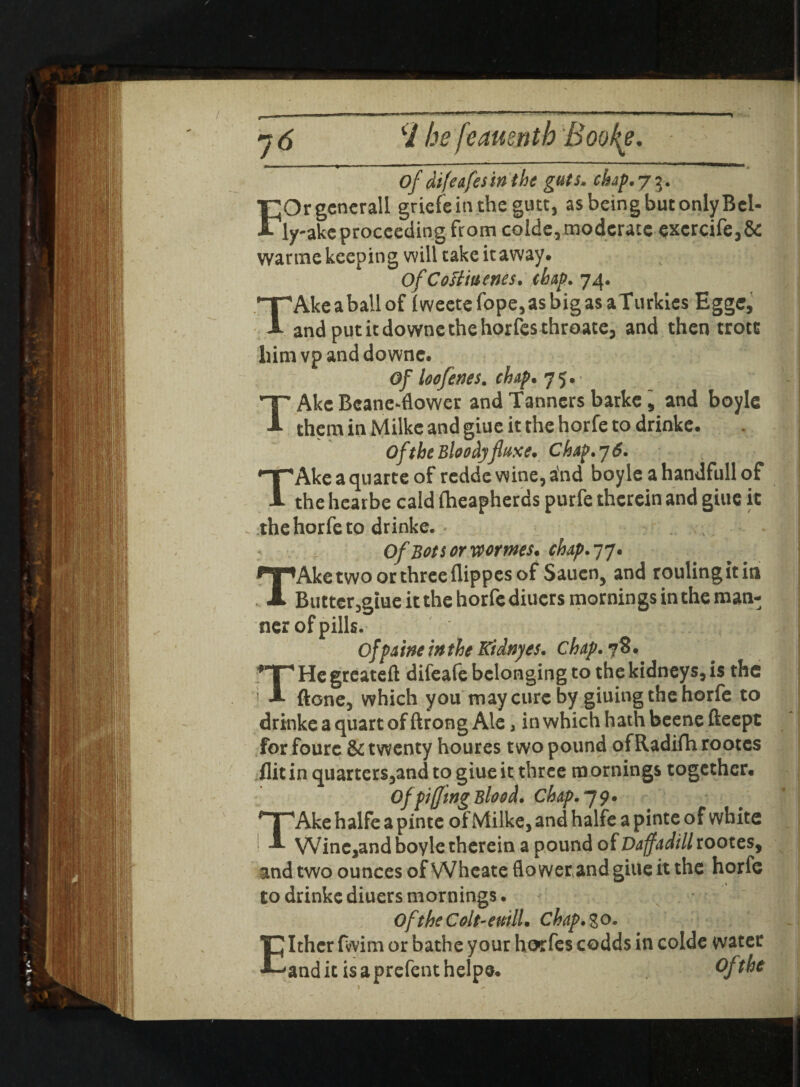 76 The seauenth Booke.
Of diseases in the guts. chap. 73.
FOr generall griefe in the gutt, as being but only Bel-
ly-ake proceeding from colde, moderate exercise, &
warme keeping will take it away.
Of Costiuenes. chap. 74.
TAke a ball of sweete sope, as big as a Turkies Egge,
and put it downe the horses throate, and then trott
him vp and downe.
Of loosenes. chap. 75.
TAke Beane-flower and Tanners barke, and boyle
them in Milke and giue it the horse to drinke.
Of the Bloody fluxe. Chap. 76.
TAke a quarte of redde wine, and boyle a handfull of
the hearbe cald sheapherds purse therein and giue it
the horse to drinke.
Of Bots or wormes. chap. 77.
TAke two or three slippes of Sauen, and rouling it in
Butter, giue it the horse diuers mornings in the man-
ner of pills.
Of paine in the Kidnyes. Chap. 78.
THe greatest disease belonging to the kidneys, is the
stone, which you may cure by giuing the horse to
drinke a quart of strong Ale, in which hath beene steept
for foure & twenty houres two pound of Radish rootes
slit in quarters, and to giue it three mornings together.
Of pissing Blood. Chap. 79.
TAke halfe a pinte of Milke, and halfe a pinte of white
Wine, and boyle therein a pound of Daffadill rootes,
and two ounces of Wheate flower and giue it the horse
to drinke diuers mornings.
Of the Colt-euill. Chap. 80.
EIther swim or bathe your horses codds in colde water
and it is a present helpe.
Of the